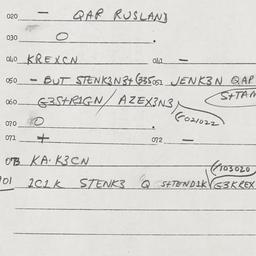 020 — QAP RUSLAND
030 O .
040 KREXCN 041 —
050 — BUT STENK3N3+G35 051 JENK3N QAP
S+TAM
060 G3S+R1GN/AZEX3N3
F021022
070 O .
071 + 072 —
073 KA·K3CN
F103020
101 1C1K STENK3 Q S+TEND1K G3KREX